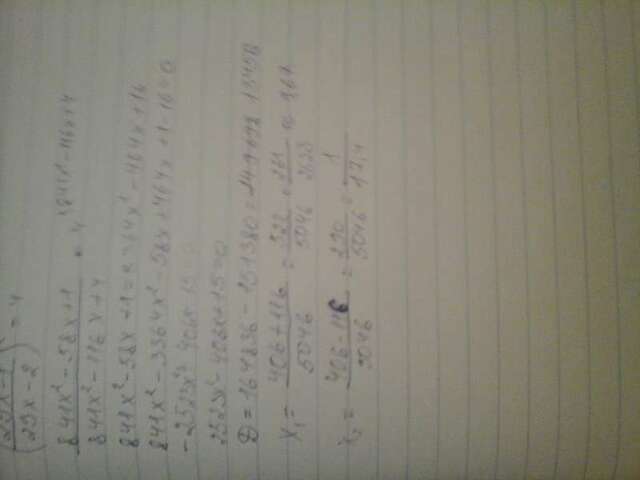 (29x-1 / 29x-2)² = 4
841x² - 58x + 1 / 841x² - 116x + 4 = 4 (841x² - 116x + 4
841x² - 58x + 1 = 3364x² - 464x + 16
841x² - 3364x² - 58x + 464x + 1 - 16 = 0
-2523x² + 406x - 15 = 0
2523x² - 406x + 15 = 0
D = 164836 - 151380 = 13456
x₁ = 406 + 116 / 5046 = 522 / 5046 = 261 / 2523
x₂ = 406 - 116 / 5046 = 290 / 5046 = 1 / 17,4